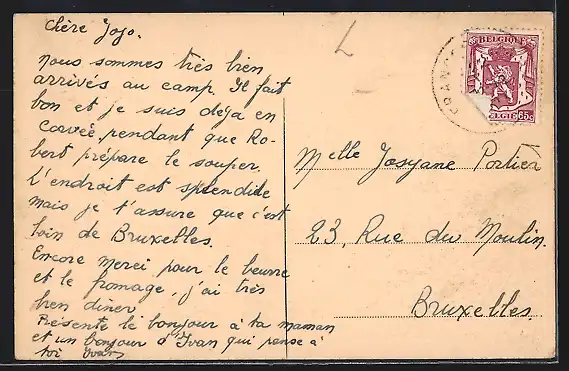 Chère Jojo.
Nous sommes très bien
arrivés au camp. Il fait
bon et je suis déja en
Corvée, pendant que Ro-
bert prépare le souper.
L'endroit est splendide
mais je t'assure que c'est
loin de Bruxelles.
Encore merci pour le beurre
et le fromage, j'ai très
bien diner
Présente le bonjour à ta maman
et un bonjour d'Ivan qui pense à
toi Ivan
L
BELGIQUE
BELGIE 65c
Melle Josyane Portier
23, Rue du Moulin.
Bruxelles